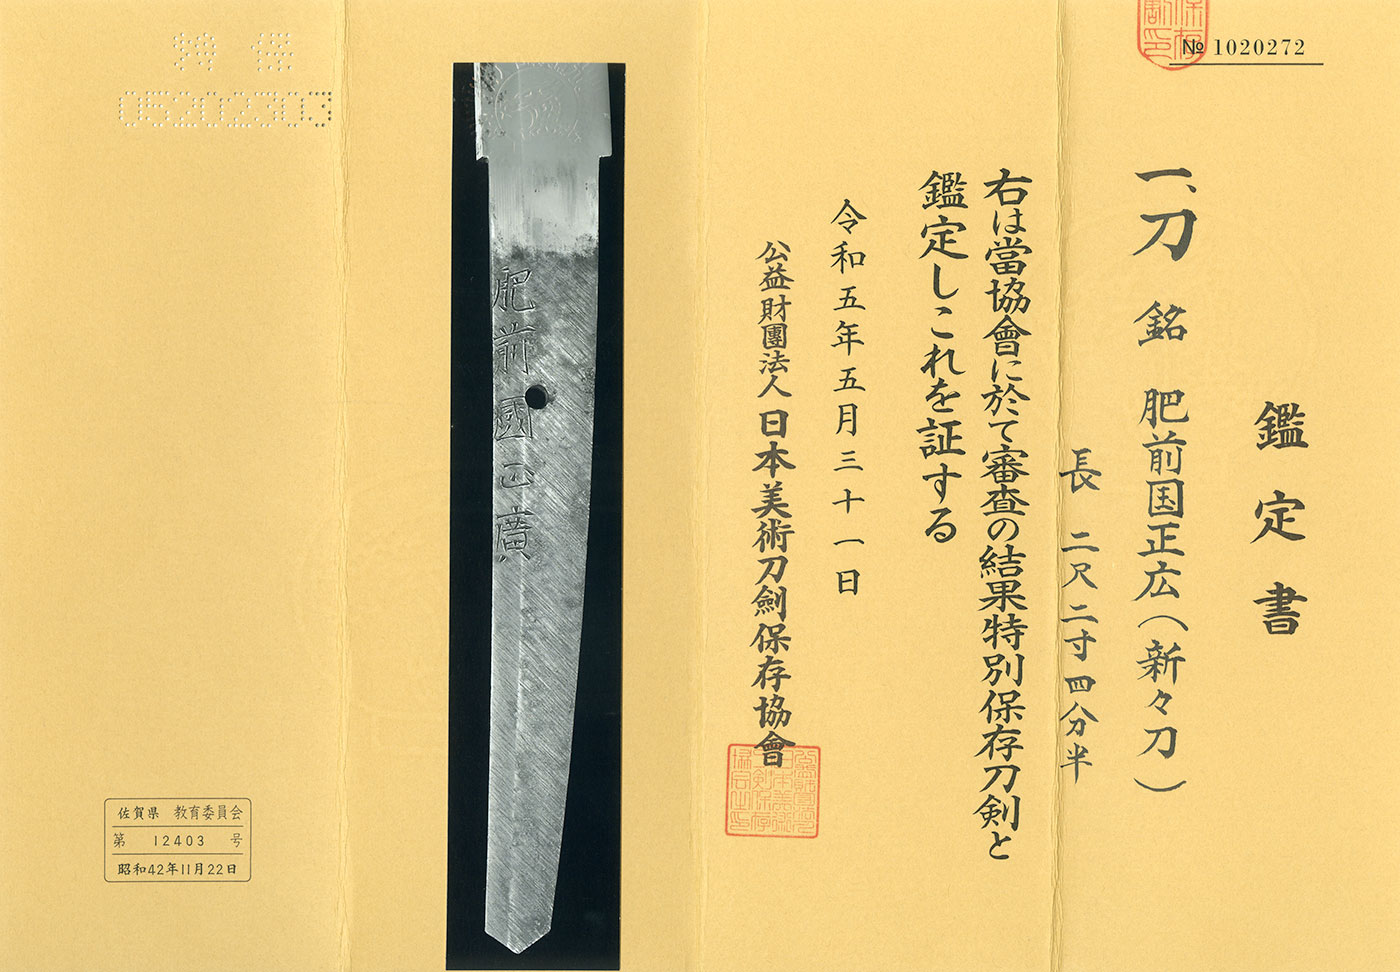 № 1020272
鑑定書
一、刀 銘 肥前国正広(新々刀)
長 二尺二寸四分半
右は當協會に於て審査の結果特別保存刀剣と
鑑定しこれを証する
令和五年五月三十一日
公益財團法人 日本美術刀劍保存協會
肥前國正廣
特保
05202303
佐賀県 教育委員会
第 12403 号
昭和42年11月22日